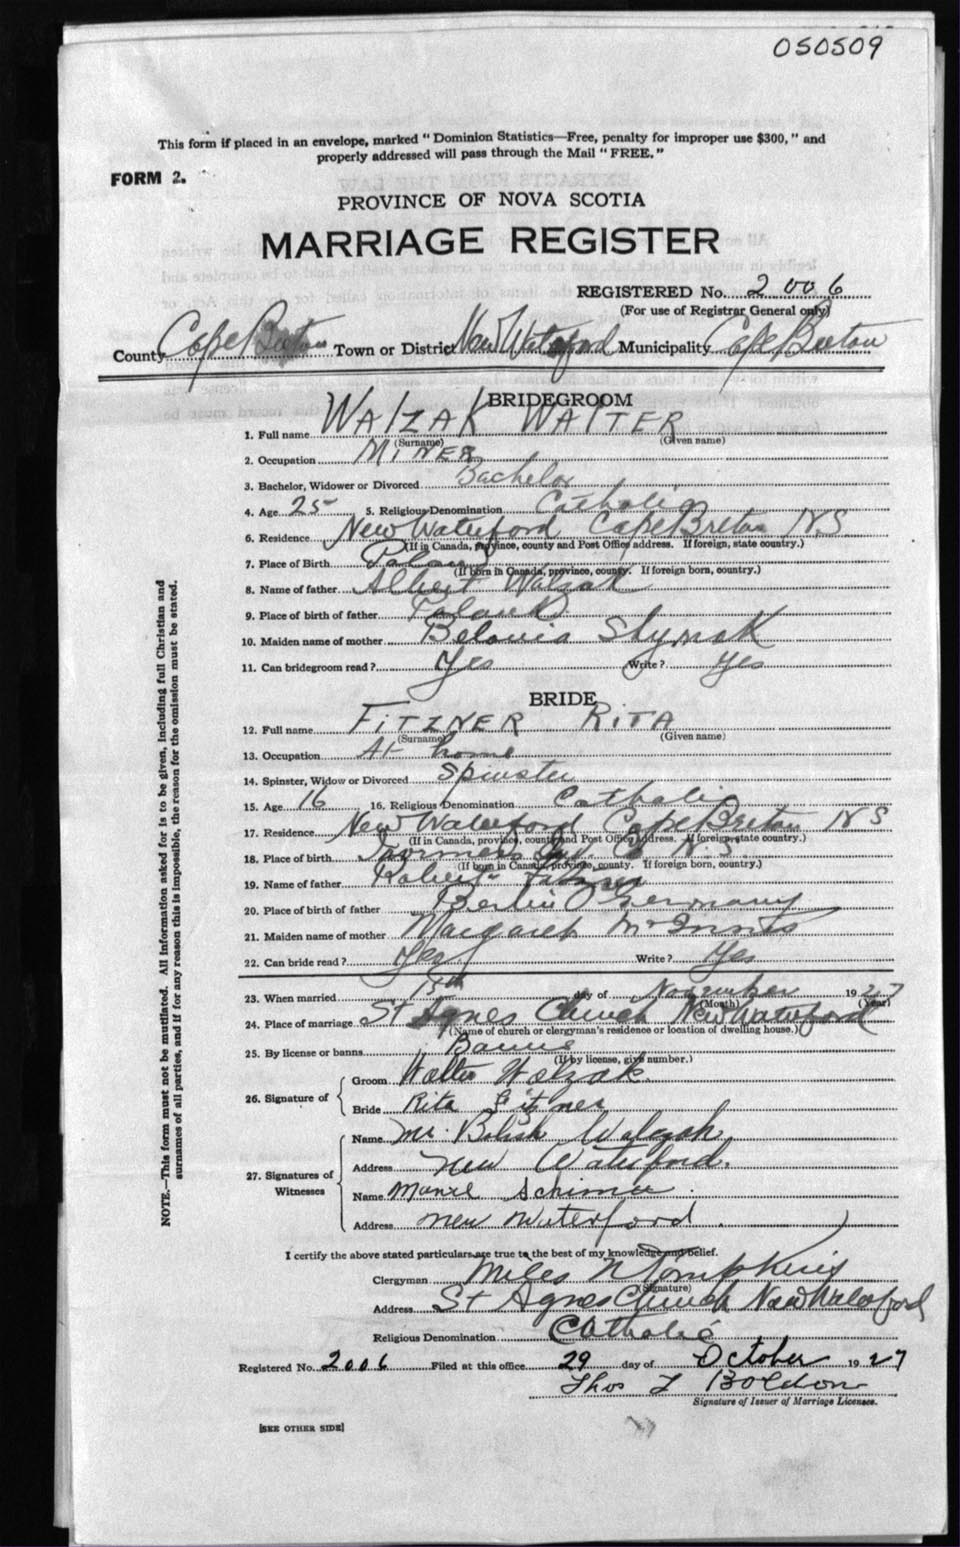 050509
This form if placed in an envelope, marked "Dominion Statistics—Free, penalty for improper use $300," and
properly addressed will pass through the Mail "FREE."
FORM 2.
PROVINCE OF NOVA SCOTIA
MARRIAGE REGISTER
REGISTERED No. 2006
(For use of Registrar General only)
County Cape Breton Town or District New Waterford Municipality Cape Breton
BRIDEGROOM
1. Full name WALZAK WALTER
(Surname) (Given name)
2. Occupation MINER
3. Bachelor, Widower or Divorced Bachelor
4. Age 25 5. Religious Denomination Catholic
6. Residence New Waterford Cape Breton N.S.
(If in Canada, province, county and Post Office address. If foreign, state country.)
7. Place of Birth Poland
(If born in Canada, province, county. If foreign born, country.)
8. Name of father Albert Walzak
9. Place of birth of father Poland
10. Maiden name of mother
11. Can bridegroom read? Yes Write? Yes
BRIDE
12. Full name FITZNER RITA
(Surname) (Given name)
13. Occupation At home
14. Spinster, Widow or Divorced Spinster
15. Age 16 16. Religious Denomination Catholic
17. Residence New Waterford Cape Breton N S
(If in Canada, province, county and Post Office address. If foreign, state country.)
18. Place of birth N.S.
(If born in Canada, province, county. If foreign born, country.)
19. Name of father Robert Fitzner
20. Place of birth of father Berlin Germany
21. Maiden name of mother Margaret McInnis
22. Can bride read? Yes Write? Yes
23. When married 15th day of November 1927
(Month) (Year)
24. Place of marriage St Agnes Church New Waterford
(Name of church or clergyman's residence or location of dwelling house.)
25. By license or banns Banns
(If by license, give number.)
26. Signature of
Groom Walter Walzak
Bride Rita Fitzner
27. Signatures of Witnesses
Name Mr. Walczak
Address New Waterford.
Name
Address New Waterford
I certify the above stated particulars are true to the best of my knowledge and belief.
Clergyman Miles N Tompkins
(Signature)
Address St Agnes Church New Waterford
Religious Denomination Catholic
Registered No. 2006 Filed at this office 29 day of October 1927
Thos L Boldon
Signature of Issuer of Marriage Licenses.
[SEE OTHER SIDE]
NOTE.—This form must not be mutilated. All information asked for is to be given, including full Christian and
surnames of all parties, and if for any reason this is impossible, the reason for the omission must be stated.